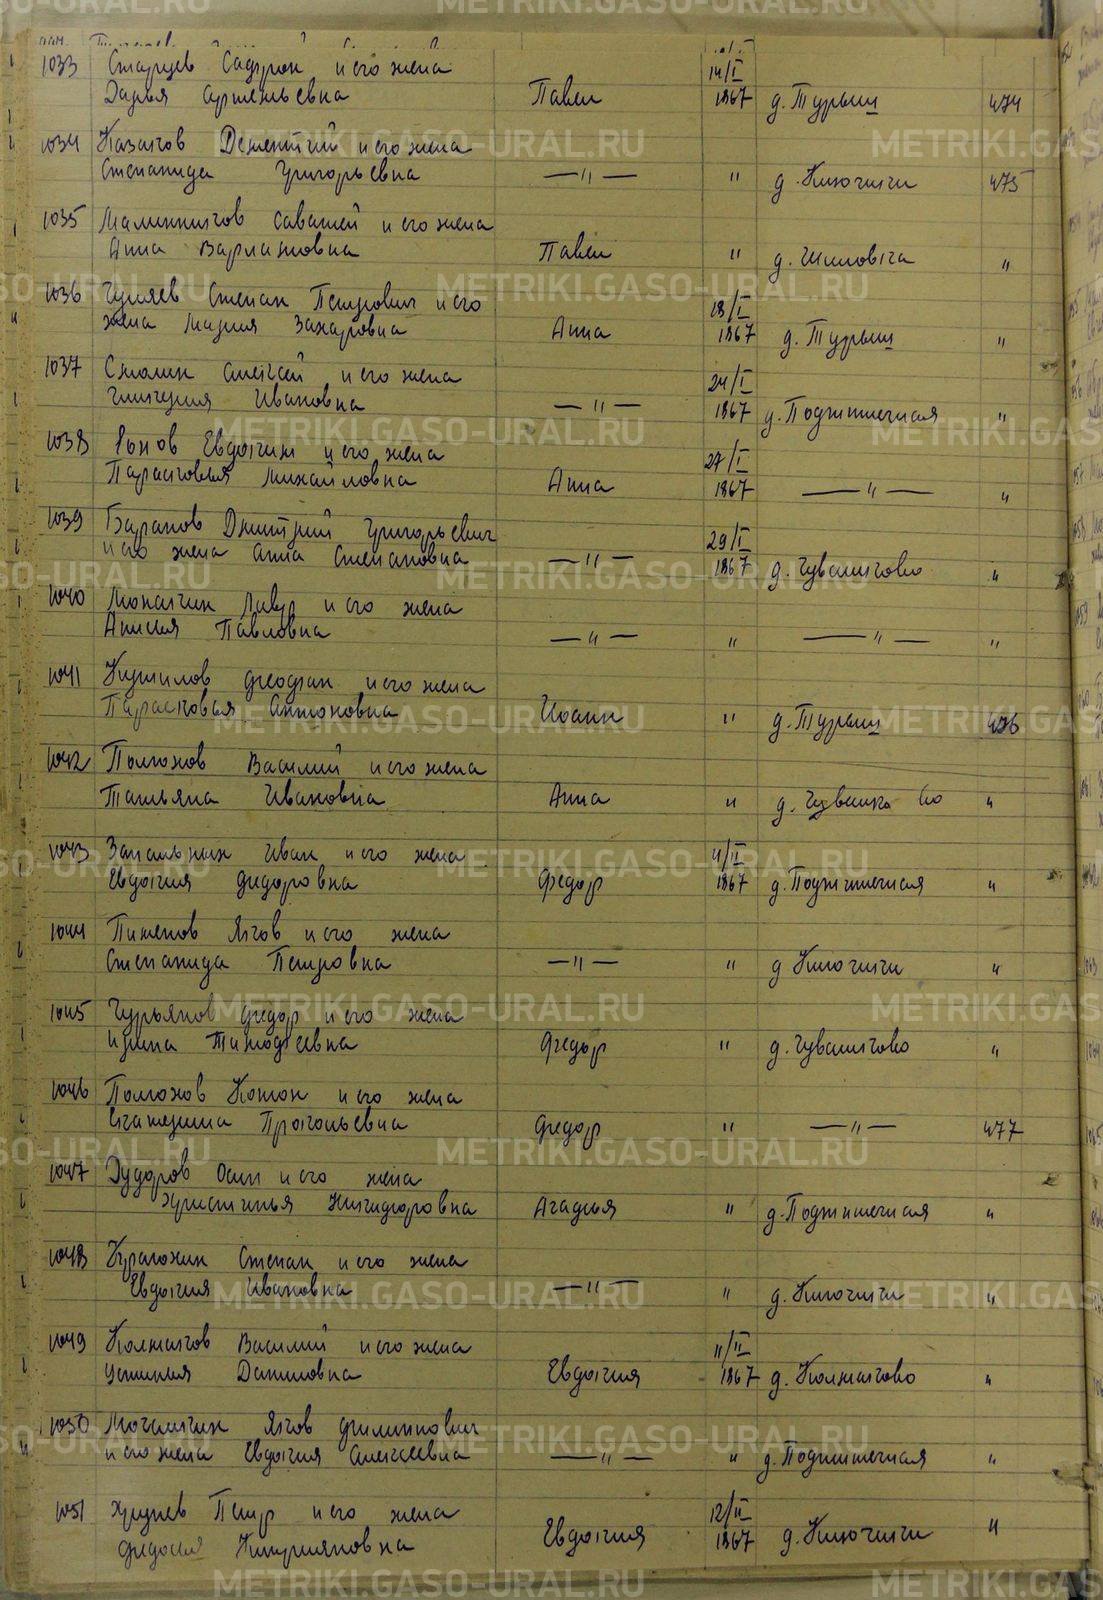 1033 Старцев Софрон и его жена 14/I
Дарья Арсеньевна Павел 1867 д. Турыш 474
1034 Казаков Дементий и его жена
Степанида Григорьевна —"— " д. Ключики 475
1035 Малинников Савватей и его жена
Анна Варламовна Павел " д. Шиловка "
1036 Гуляев Степан Петрович и его 18/I
жена Мария Захаровна Анна 1867 д. Турыш "
1037 Смолин Алексей и его жена 24/I
Гликерия Ивановна —"— 1867 д. Подгишечная "
1038 Евдоким и его жена 27/I
Парасковья Михайловна Анна 1867 —"— "
1039 Баранов Дмитрий Григорьевич 29/I
и его жена Анна Степановна —"— 1867 д. Чувашково "
1040 Лавр и его жена
Анисия Павловна —"— " —"— "
1041 Феофан и его жена
Парасковья Антоновна Иоанн " д. Турыш 476
1042 Василий и его жена
Татьяна Ивановна Анна " д. "
1043 Иван и его жена 4/II
Евдокия Федоровна Федор 1867 д. Подгишечная "
1044 Пименов Яков и его жена
Степанида Петровна —"— " д Ключики "
1045 Гурьянов Федор и его жена
Ирина Тимофеевна Федор " д. Чувашково "
1046 Конон и его жена
Прокопьевна Федор " —"— 477
1047 Дудоров Осип и его жена
Христинья Никифоровна Агафья " д. Подгишечная "
1048 Степан и его жена
Евдокия Ивановна —"— " д. Ключики "
1049 Колмаков Василий и его жена 11/II
Устинья Даниловна Евдокия 1867 д. Колмаково "
1050 Яков Филиппович
и его жена Евдокия Алексеевна —"— " д. Подгишечная "
1051 Петр и его жена 12/II
Федосия Киприяновна Евдокия 1867 д. Ключики "
METRIKI.GASO-URAL.RU